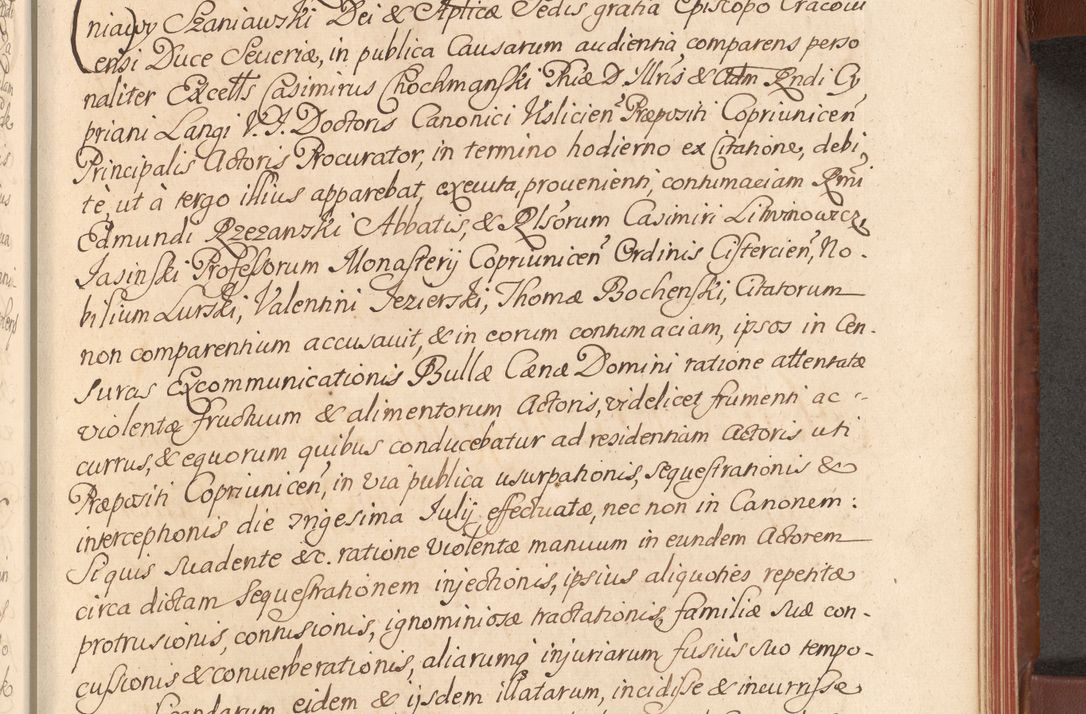 niawy Szaniawski Dei & Apticæ Sedis gratia Episcopo Cracovi
ensi Duce Severiæ, in publica Causarum audientia comparens perso
naliter Excells Casimirus Chochmanſki Phiæ D. Illris & Adm Rndi Cy
priani Langi V. J. Doctoris Canonici Uslicien Præpositi Copriunicen
Principalis Actoris Procurator, in termino hodierno ex Citatione, debi,
te, ut à tergo illius apparebat, executa, prouenienti, contumaciam Rmi
Edmundi Rzezanzki Abbatis, & Rlſorum Casimiri Litwinowicz,
Jasinſki Profeſſorum Monaſterij Copriunicen Ordinis Ciſtercien, No.
bilium Lurski, Valentini Jezierski, Thomæ Bochenſki, Citatorum
non comparentium accusauit, & in eorum contumaciam, ipsos in Cen.
suras Excommunicationis Bullæ Cænæ Domini ratione attentatæ
violentæ fructuum & alimentorum Actoris, videlicet frumenti ac
currus, & equorum quibus conducebatur ad residentiam Actoris uti
Præpositi Copriunicen, in via publica usurpationis, sequeſtrationis &
interceptionis die Trigesima Julij effectuatæ, nec non in Canonem:
Si quis suadente &c. ratione violentæ manuum in eundem Actorem
circa dictam sequeſtrationem injectionis, ipsius aliquoties repetitæ
protrusionis, contusionis, ignominiosæ tractationis, familiæ suæ con-
cuſsionis & conuerberationis, aliarumq injuriarum fusiùs suo tempo-
eidem & ijsdem illatarum, incidiſse & incurriſse